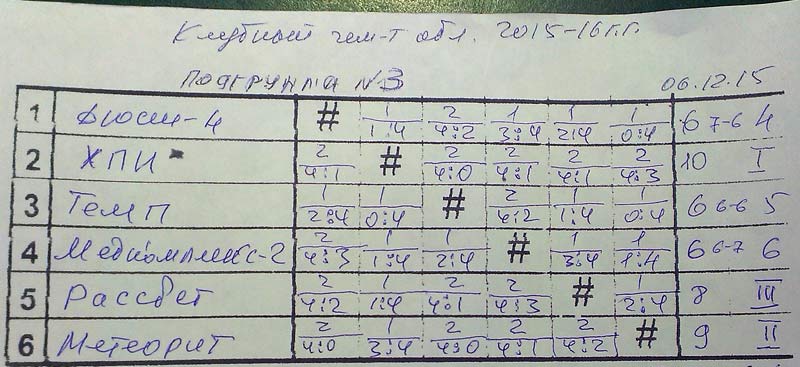 Клубный чем-т обл. 2015-16 г.г.
Подгруппа №3 06.12.15
1 Дюсш-4 # 1 1:4 2 4:2 1 3:4 1 2:4 1 0:4 6 7-6 4
2 ХПИ 2 4:1 # 2 4:0 2 4:1 2 4:1 2 4:3 10 I
3 Темп 1 2:4 1 0:4 # 2 4:2 1 1:4 1 0:4 6 6-6 5
4 Медкомплекс-2 2 4:3 1 1:4 1 2:4 # 1 3:4 1 1:4 6 6-7 6
5 Рассвет 2 4:2 1 1:4 2 4:1 2 4:3 # 1 2:4 8 III
6 Метеорит 2 4:0 1 3:4 2 4:0 2 4:1 2 4:2 # 9 II